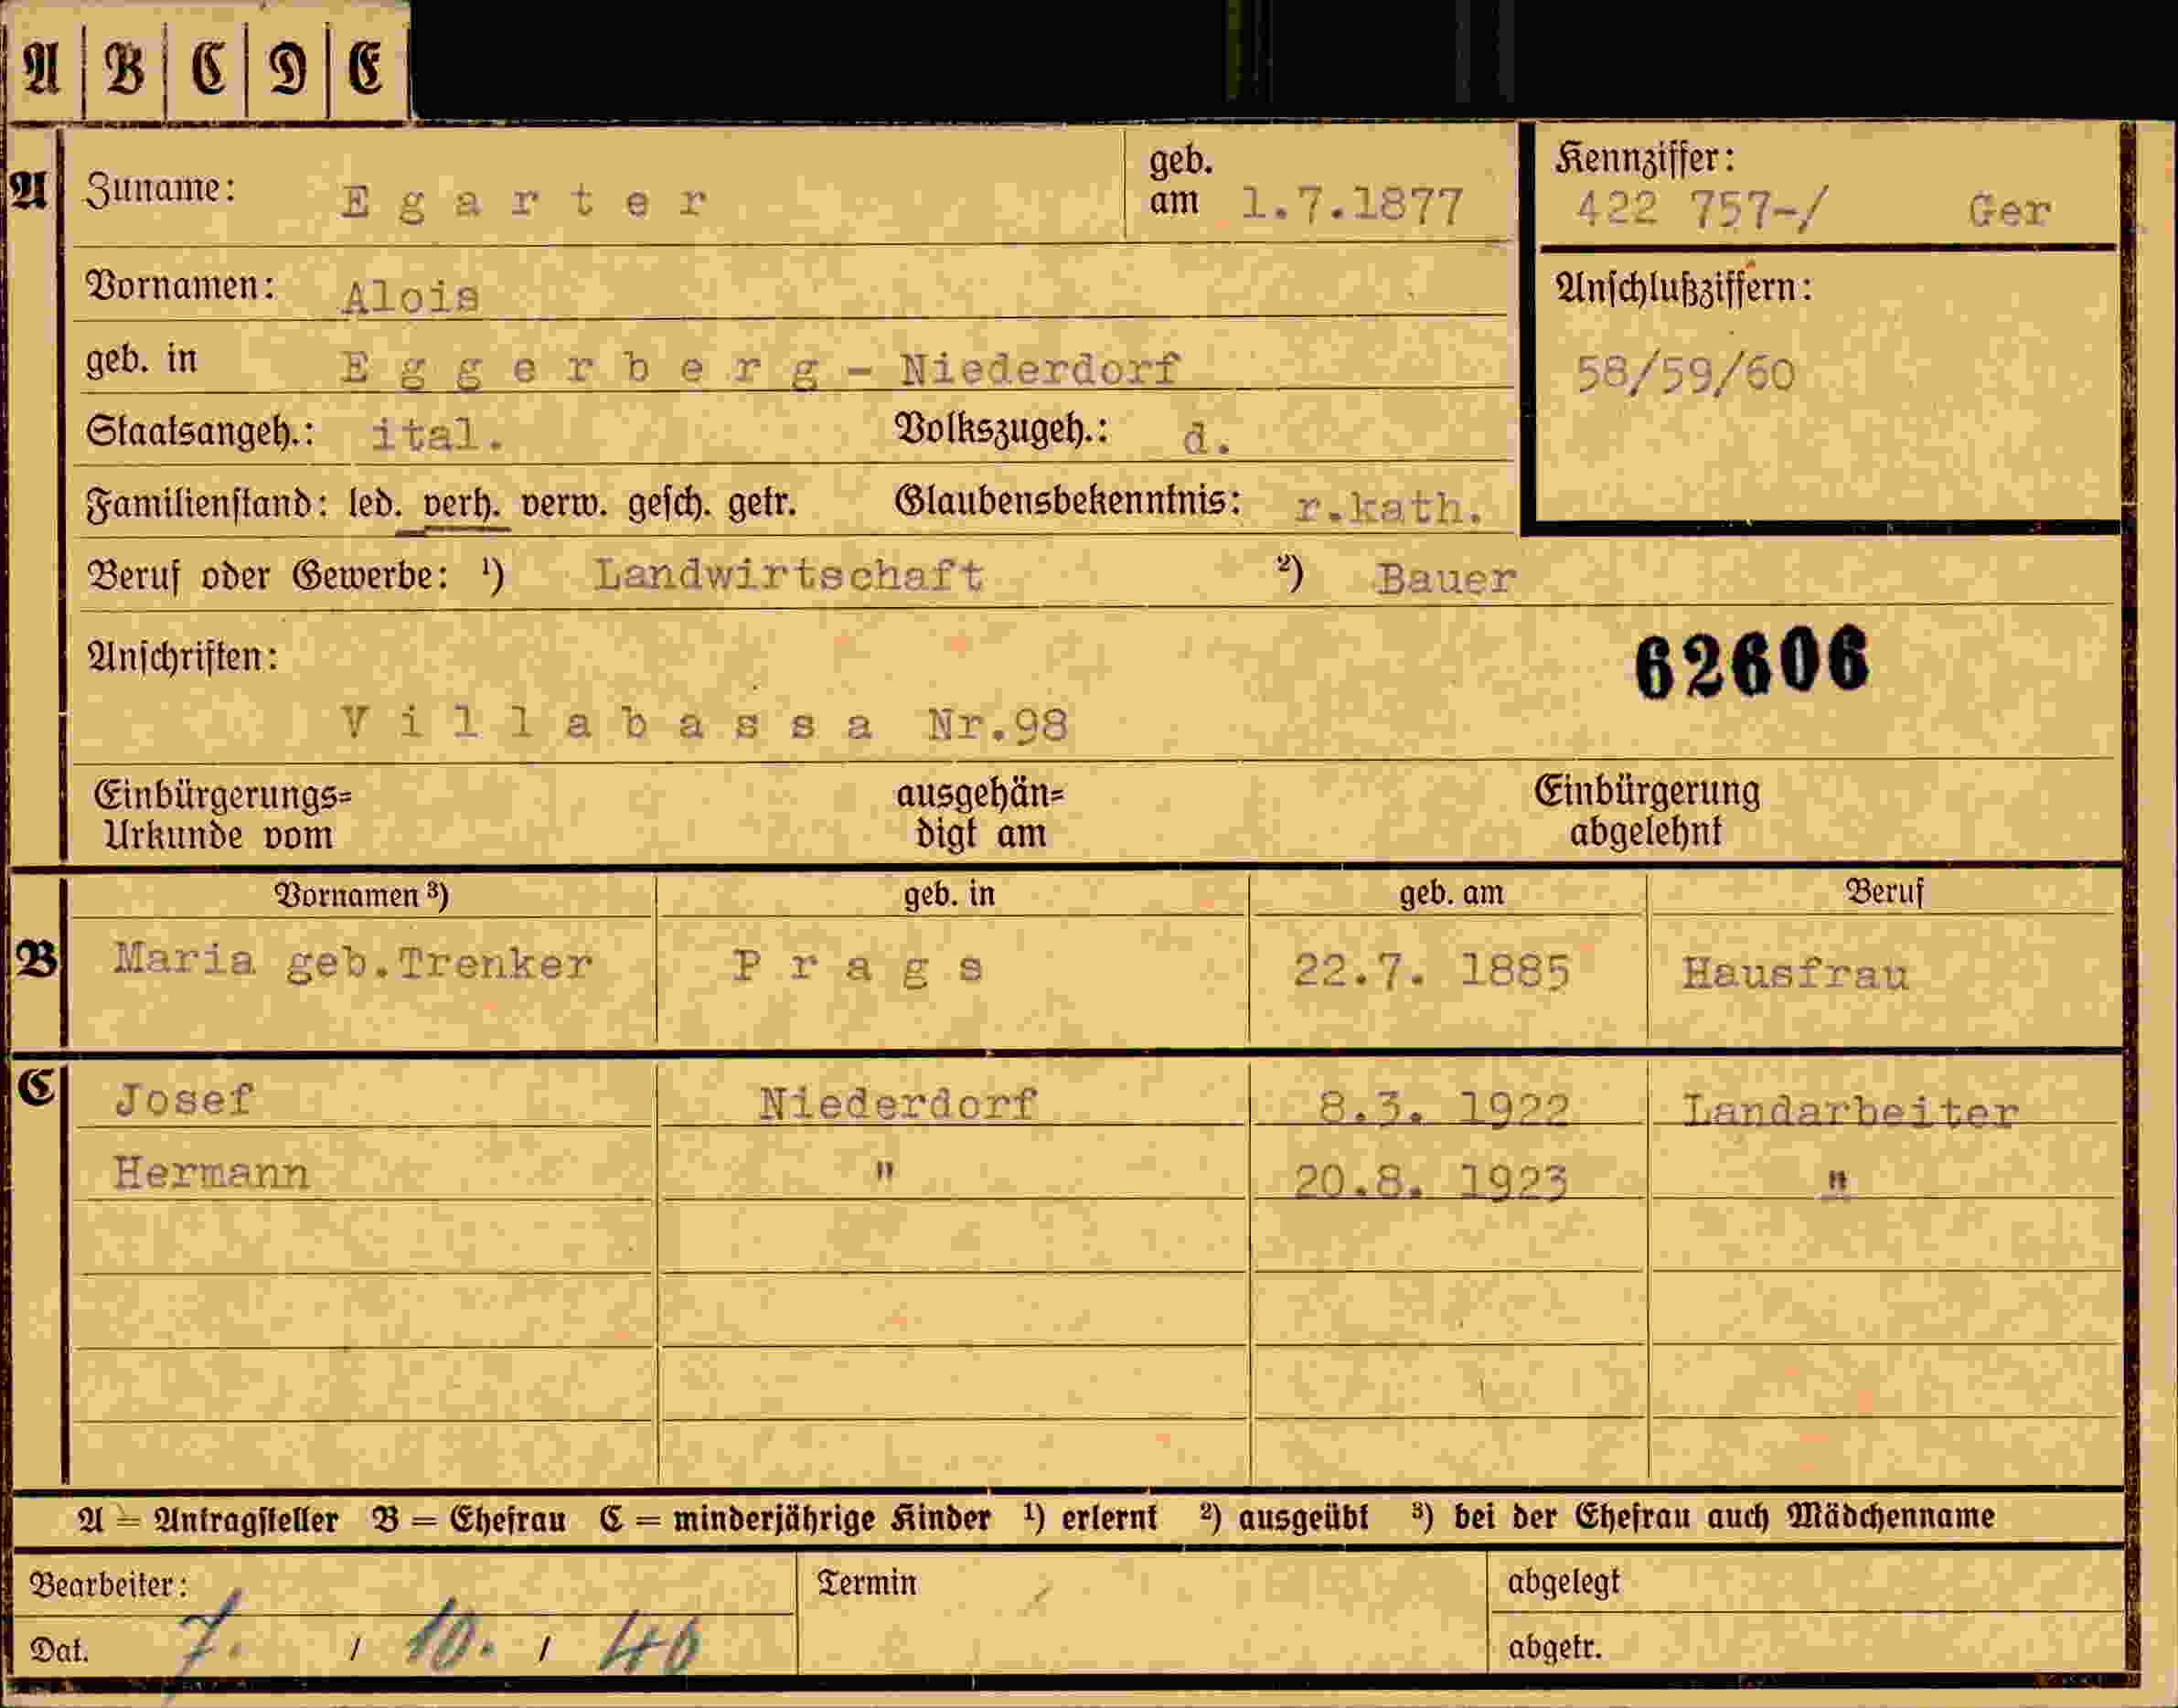 A B C D E
A Zuname: Egarter geb. am 1.7.1877
Kennziffer: 422 757-/ Ger
Vornamen: Alois
Anschlußziffern: 58/59/60
geb. in Eggerberg - Niederdorf
Staatsangeh.: ital. Volkszugeh.: d.
Familienstand: led. verh. verw. gesch. getr. Glaubensbekenntnis: r.kath.
Beruf oder Gewerbe: ¹) Landwirtschaft ²) Bauer
Anschriften: 62606
Villabassa Nr.98
Einbürgerungs= ausgehän= Einbürgerung
Urkunde vom digt am abgelehnt
Vornamen ³) geb. in geb. am Beruf
B Maria geb.Trenker Prags 22.7. 1885 Hausfrau
C Josef Niederdorf 8.3. 1922 Landarbeiter
Hermann " 20.8. 1923 "
A = Antragsteller B = Ehefrau C = minderjährige Kinder ¹) erlernt ²) ausgeübt ³) bei der Ehefrau auch Mädchenname
Bearbeiter: Termin abgelegt
Dat. 7. / 10. / 40 abgetr.